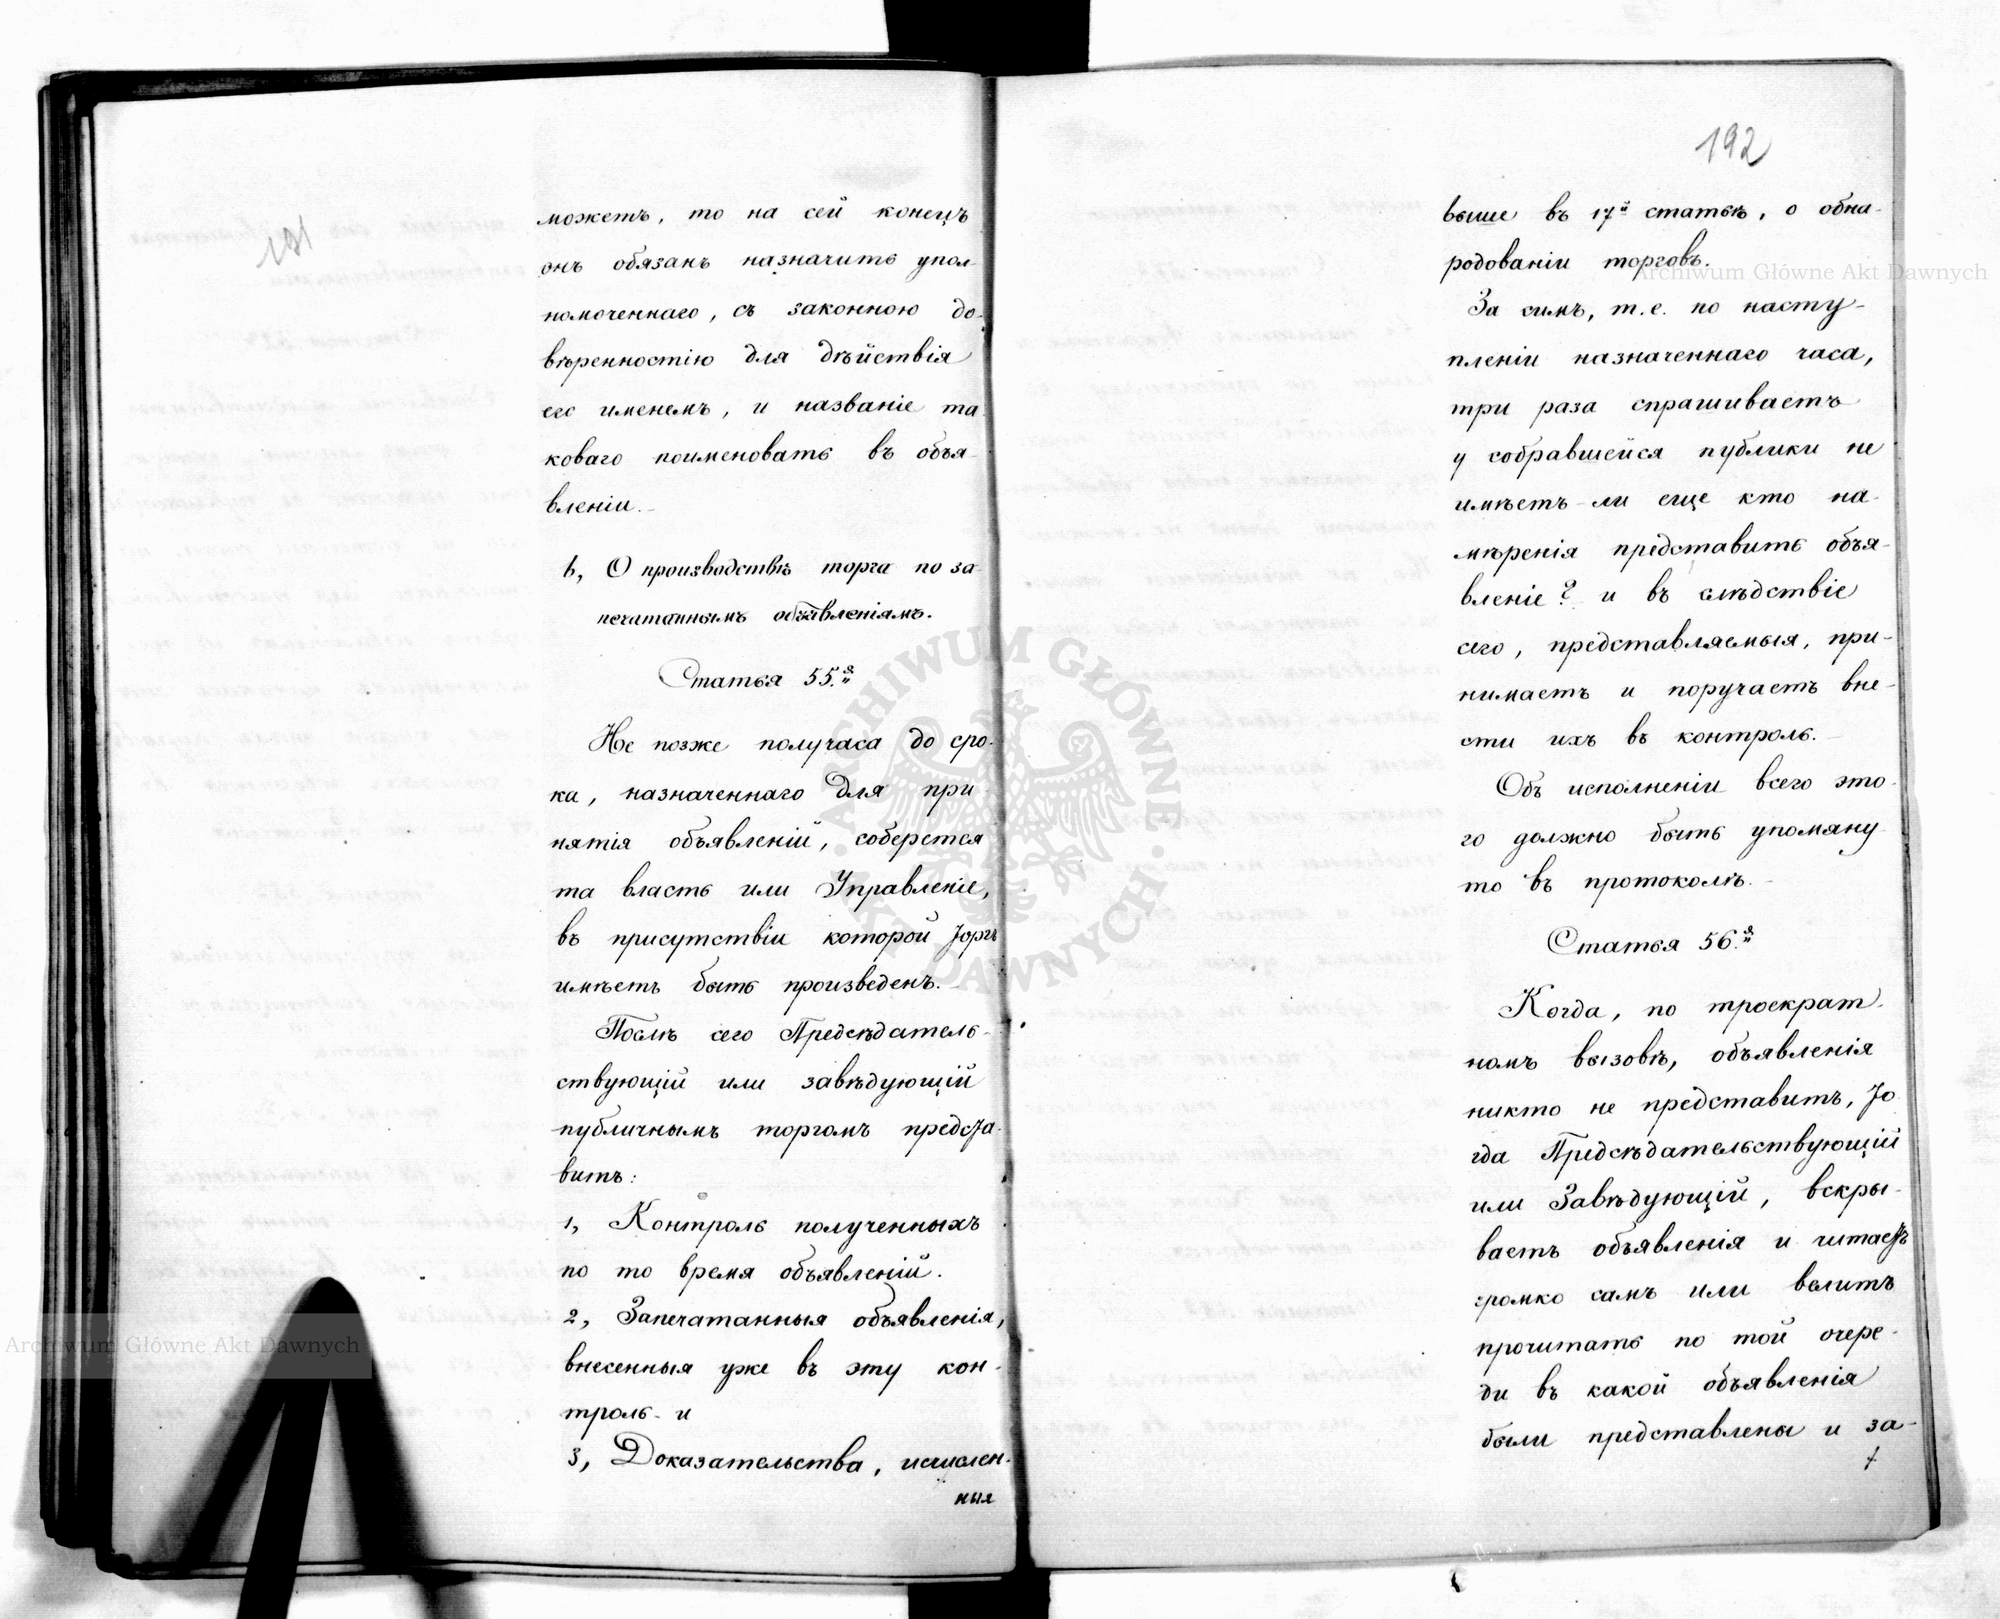 можетъ, то на сей конецъ
онъ обязанъ назначить упол-
номоченнаго, съ законною до-
вѣренностію для дѣйствія
его именемъ, и названіе та-
коваго поименовать въ объя-
вленіи.
b, О производствѣ торга по за-
печатаннымъ объявленіямъ.
Статья 55.я
Не позже получаса до сро-
ка, назначеннаго для при-
нятія объявленій, соберется
та власть или Управленіе,
въ присутствіи которой торгъ
имѣетъ быть произведенъ.
Послѣ сего Предсѣдатель-
ствующій или завѣдующій
публичнымъ торгомъ предста-
витъ:
1, Контроль полученныхъ
по то время объявленій.
2, Запечатанныя объявленія,
внесенныя уже въ эту кон-
троль и
3, Доказательства, исчислен-
ныя
192
выше въ 17й статьѣ, о обна-
родованіи торговъ.
За симъ, т.е. по насту-
пленіи назначеннаго часа,
три раза спрашиваетъ
у собравшейся публики не
имѣетъ-ли еще кто на-
мѣренія представить объя-
вленіе? и въ слѣдствіе
сего, представляемыя, при-
нимаетъ и поручаетъ вне-
сти ихъ въ контроль.
Объ исполненіи всего это-
го должно быть упомяну-
то въ протоколѣ.
Статья 56.я
Когда, по троекрат-
номъ вызовѣ, объявленія
никто не представитъ, то-
гда Предсѣдательствующій
или Завѣдующій, вскры-
ваетъ объявленія и читаетъ
громко самъ или велитъ
прочитать по той очере-
ди въ какой объявленія
были представлены и за-
191
Archiwum Główne Akt Dawnych
Archiwum Główne Akt Dawnych
ARCHIWUM GŁÓWNE AKT DAWNYCH